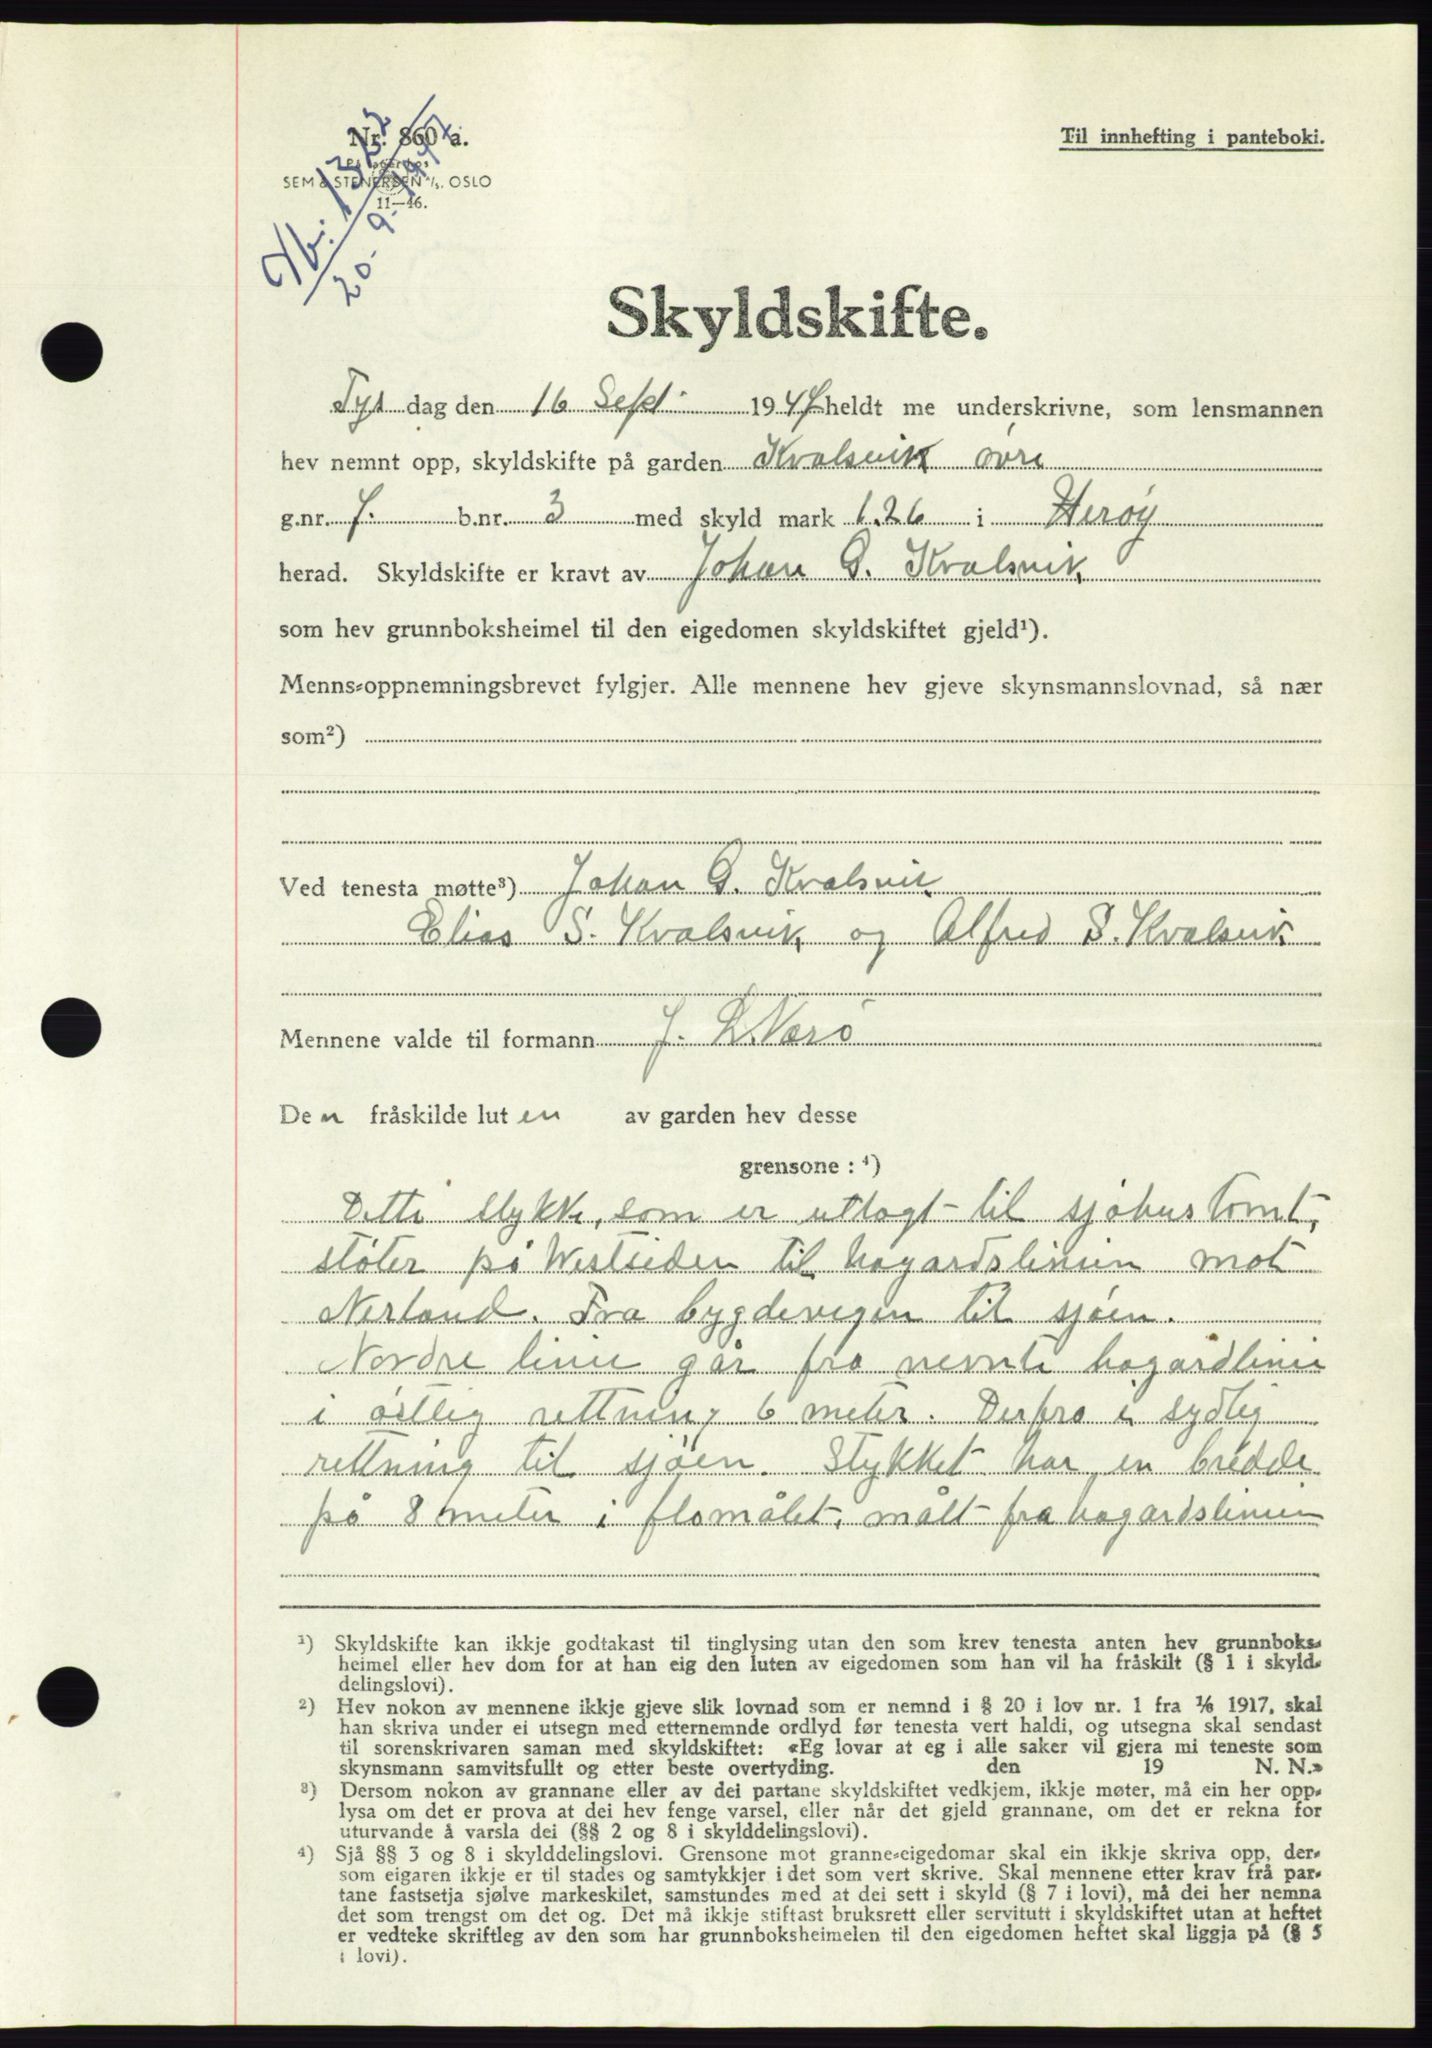 Nr. 860 a.
På lager hos
SEM & STENERSEN A/S, OSLO
11—46.
Til innhefting i panteboki.
20-9-1947
Skyldskifte.
Tys dag den 16 Sept 1947 heldt me underskrivne, som lensmannen
hev nemnt opp, skyldskifte på garden Kvalsvik øvre
g.nr. 7. b.nr. 3 med skyld mark 1.26 i Herøy
herad. Skyldskifte er kravt av Johan G. Kvalsvik
som hev grunnboksheimel til den eigedomen skyldskiftet gjeld¹).
Menns-oppnemningsbrevet fylgjer. Alle mennene hev gjeve skynsmannslovnad, så nær
som²)
Ved tenesta møtte³) Johan G. Kvalsvik
Elias S. Kvalsvik og Alfred S. Kvalsvik
Mennene valde til formann J. L. Nærø
Den fråskilde luten av garden hev desse
grensone : ⁴)
Dette stykke, som er utlagt til sjøhustomt,
støter på Westsiden til hagardslinien mot
Nerland. Fra bygdevegen til sjøen.
Nordre linie går fra nevnte hagardlinie
i østlig rettning 6 meter. Derfra i sydlig
rettning til sjøen. Stykket har en bredde
på 8 meter i flomålet, målt fra hagardslinien
¹) Skyldskifte kan ikkje godtakast til tinglysing utan den som krev tenesta anten hev grunnboks-
heimel eller hev dom for at han eig den luten av eigedomen som han vil ha fråskilt (§ 1 i skyld-
delingslovi).
²) Hev nokon av mennene ikkje gjeve slik lovnad som er nemnd i § 20 i lov nr. 1 fra ⅙ 1917, skal
han skriva under ei utsegn med etternemnde ordlyd før tenesta vert haldi, og utsegna skal sendast
til sorenskrivaren saman med skyldskiftet: «Eg lovar at eg i alle saker vil gjera mi teneste som
skynsmann samvitsfullt og etter beste overtyding. den 19 N. N.»
³) Dersom nokon av grannane eller av dei partane skyldskiftet vedkjem, ikkje møter, må ein her opp-
lysa om det er prova at dei hev fenge varsel, eller når det gjeld grannane, om det er rekna for
uturvande å varsla dei (§§ 2 og 8 i skylddelingslovi).
⁴) Sjå §§ 3 og 8 i skylddelingslovi. Grensone mot granne-eigedomar skal ein ikkje skriva opp, der-
som eigaren ikkje er til stades og samtykkjer i det som vert skrive. Skal mennene etter krav frå par-
tane fastsetja sjølve markeskilet, samstundes med at dei sett i skyld (§ 7 i lovi), må dei her nemna
det som trengst om det og. Det må ikkje stiftast bruksrett eller servitutt i skyldskiftet utan at heftet
er vedteke skriftleg av den som har grunnboksheimelen til den eigedomen heftet skal liggja på (§ 5
i lovi).